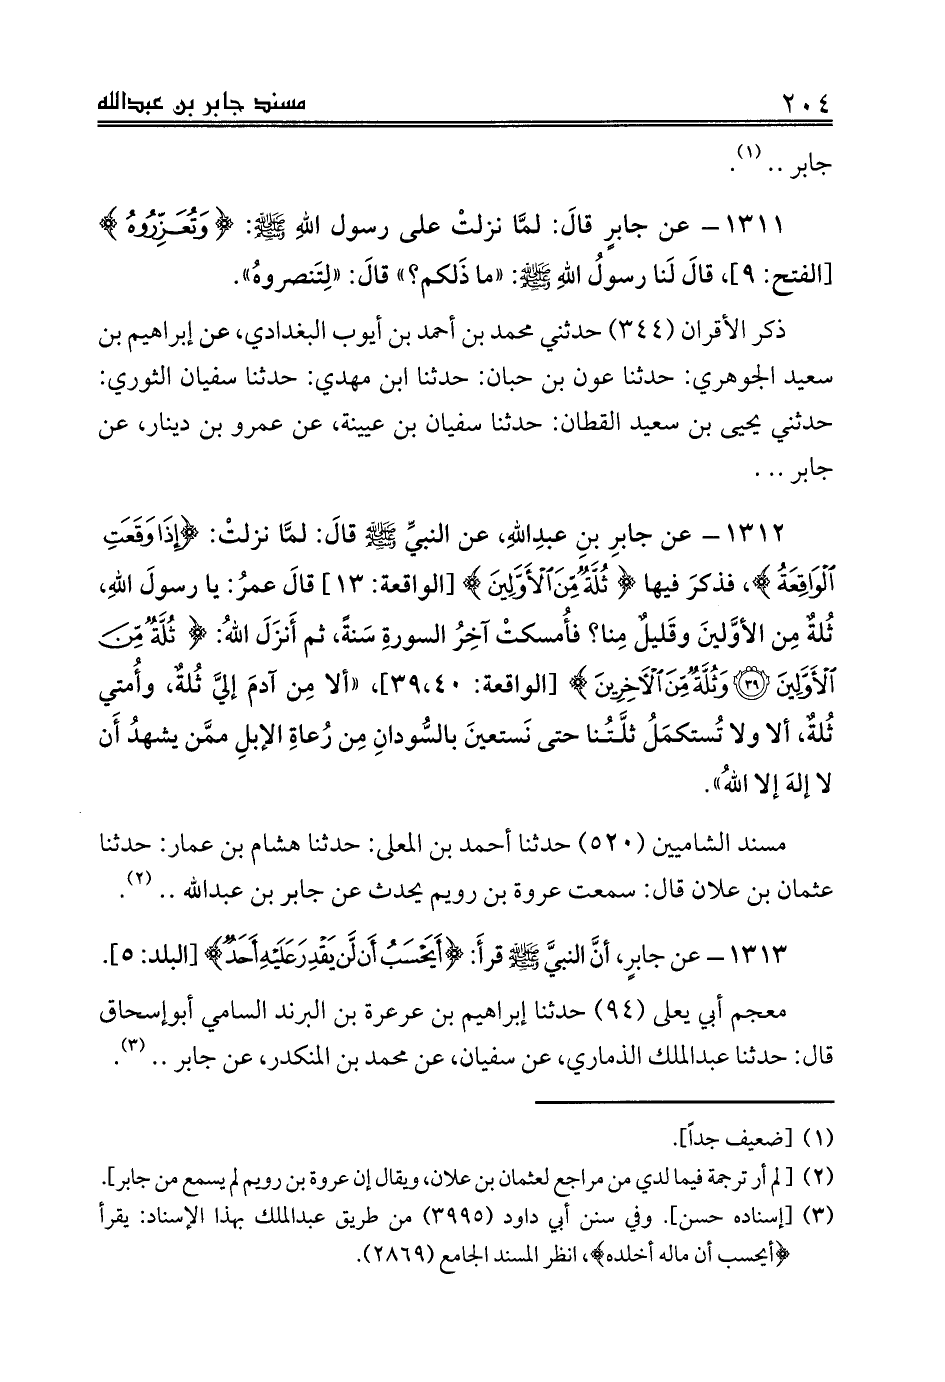 ٢٠٤ مسند جابر بن عبدالله
جابر .. (١).
١٣١١ – عن جابرٍ قالَ: لمَّا نزلتْ على رسول اللهِ ﷺ: ﴿وَتُعَزِّرُوهُ﴾
[الفتح: ٩]، قالَ لَنا رسولُ اللهِ ﷺ: «ما ذَلكم؟» قالَ: «لِتَنصروهُ».
ذكر الأقران (٣٤٤) حدثني محمد بن أحمد بن أيوب البغدادي، عن إبراهيم بن
سعيد الجوهري: حدثنا عون بن حبان: حدثنا ابن مهدي: حدثنا سفيان الثوري:
حدثني يحيى بن سعيد القطان: حدثنا سفيان بن عيينة، عن عمرو بن دينار، عن
جابر ...
١٣١٢ – عن جابرِ بنِ عبدِاللهِ، عن النبيِّ ﷺ قالَ: لمَّا نزلتْ: ﴿إِذَا وَقَعَتِ
ٱلْوَاقِعَةُ﴾، فذكرَ فيها ﴿ثُلَّةٌ مِّنَ ٱلْأَوَّلِينَ﴾ [الواقعة: ١٣] قالَ عمرُ: يا رسولَ اللهِ،
ثُلةٌ مِن الأوَّلينَ وقَليلٌ مِنا؟ فأُمسكتْ آخِرُ السورةِ سَنةً، ثم أَنزَلَ اللهُ: ﴿ثُلَّةٌ مِّنَ
ٱلْأَوَّلِينَ ٣٩ وَثُلَّةٌ مِّنَ ٱلْآخِرِينَ﴾ [الواقعة: ٣٩،٤٠]، «ألا مِن آدمَ إليَّ ثُلةٌ، وأُمتي
ثُلةٌ، ألا ولا تُستكمَلُ ثلَّتُنا حتى نَستعينَ بالسُّودانِ مِن رُعاةِ الإبلِ ممَّن يشهدُ أَن
لا إلهَ إلا اللهُ».
مسند الشاميين (٥٢٠) حدثنا أحمد بن المعلى: حدثنا هشام بن عمار: حدثنا
عثمان بن علان قال: سمعت عروة بن رويم يحدث عن جابر بن عبدالله .. (٢).
١٣١٣ – عن جابرٍ، أنَّ النبيَّ ﷺ قرأَ: ﴿أَيَحْسَبُ أَن لَّن يَقْدِرَ عَلَيْهِ أَحَدٌ﴾ [البلد: ٥].
معجم أبي يعلى (٩٤) حدثنا إبراهيم بن عرعرة بن البرند السامي أبوإسحاق
قال: حدثنا عبدالملك الذماري، عن سفيان، عن محمد بن المنكدر، عن جابر .. (٣).
(١) [ضعيف جداً].
(٢) [لم أر ترجمة فيما لدي من مراجع لعثمان بن علان، ويقال إن عروة بن رويم لم يسمع من جابر].
(٣) [إسناده حسن]. وفي سنن أبي داود (٣٩٩٥) من طريق عبدالملك بهذا الإسناد: يقرأ
﴿أيحسب أن ماله أخلده﴾، انظر المسند الجامع (٢٨٦٩).